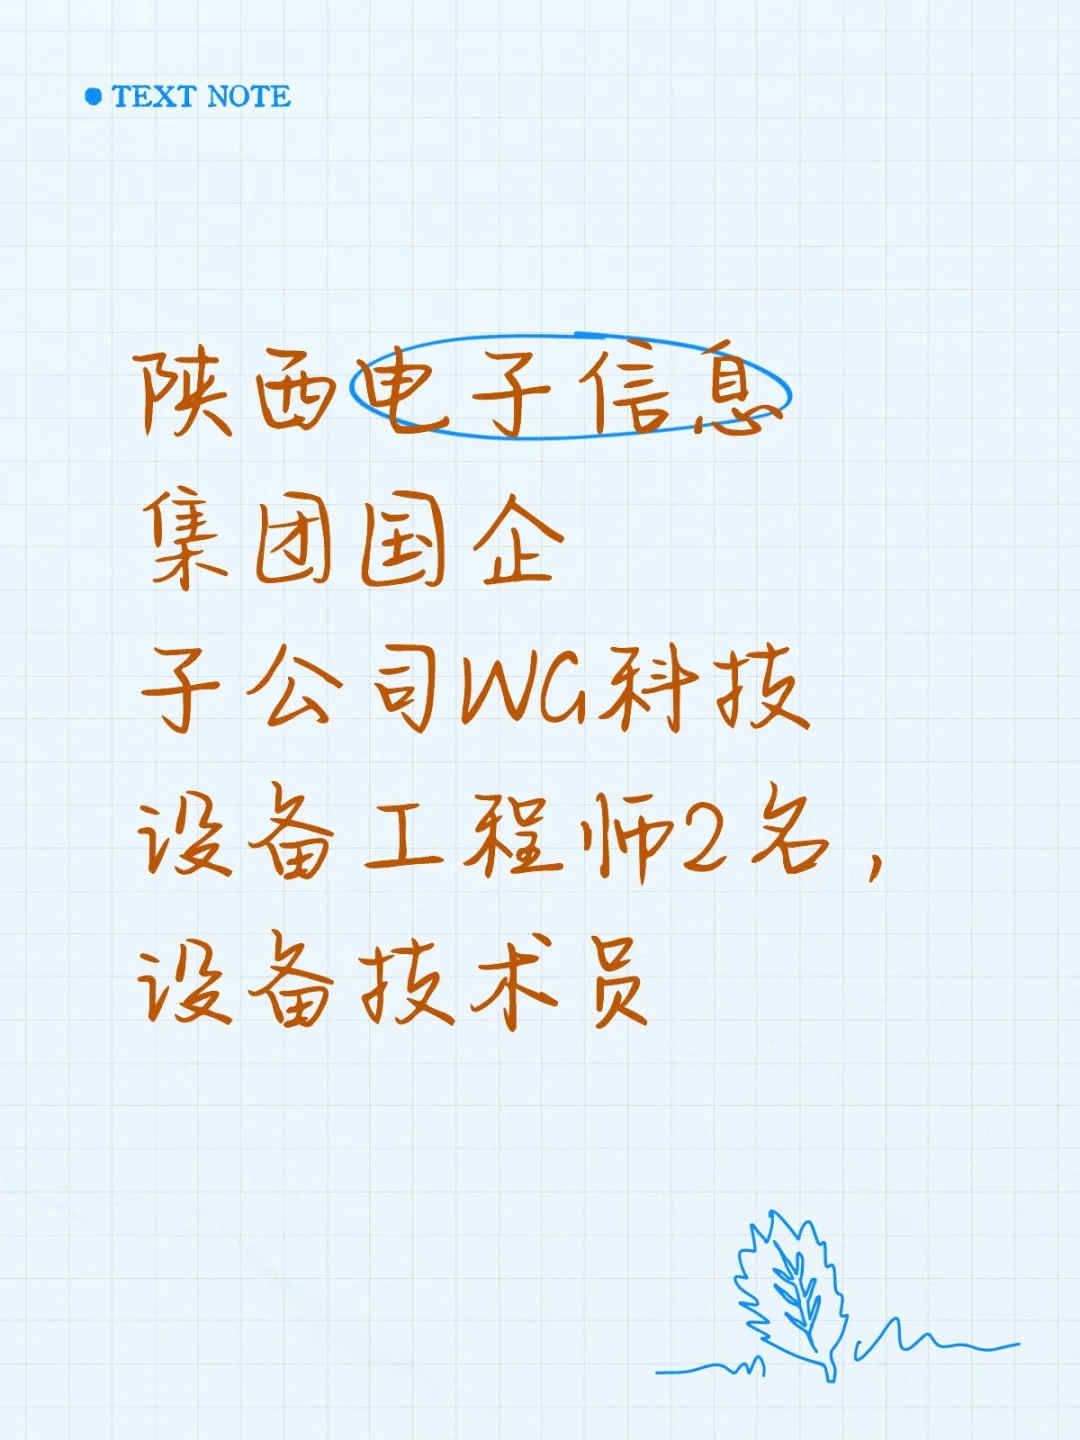 TEXT NOTE
陕西电子信息
集团国企
子公司WG科技
设备工程师2名，
设备技术员